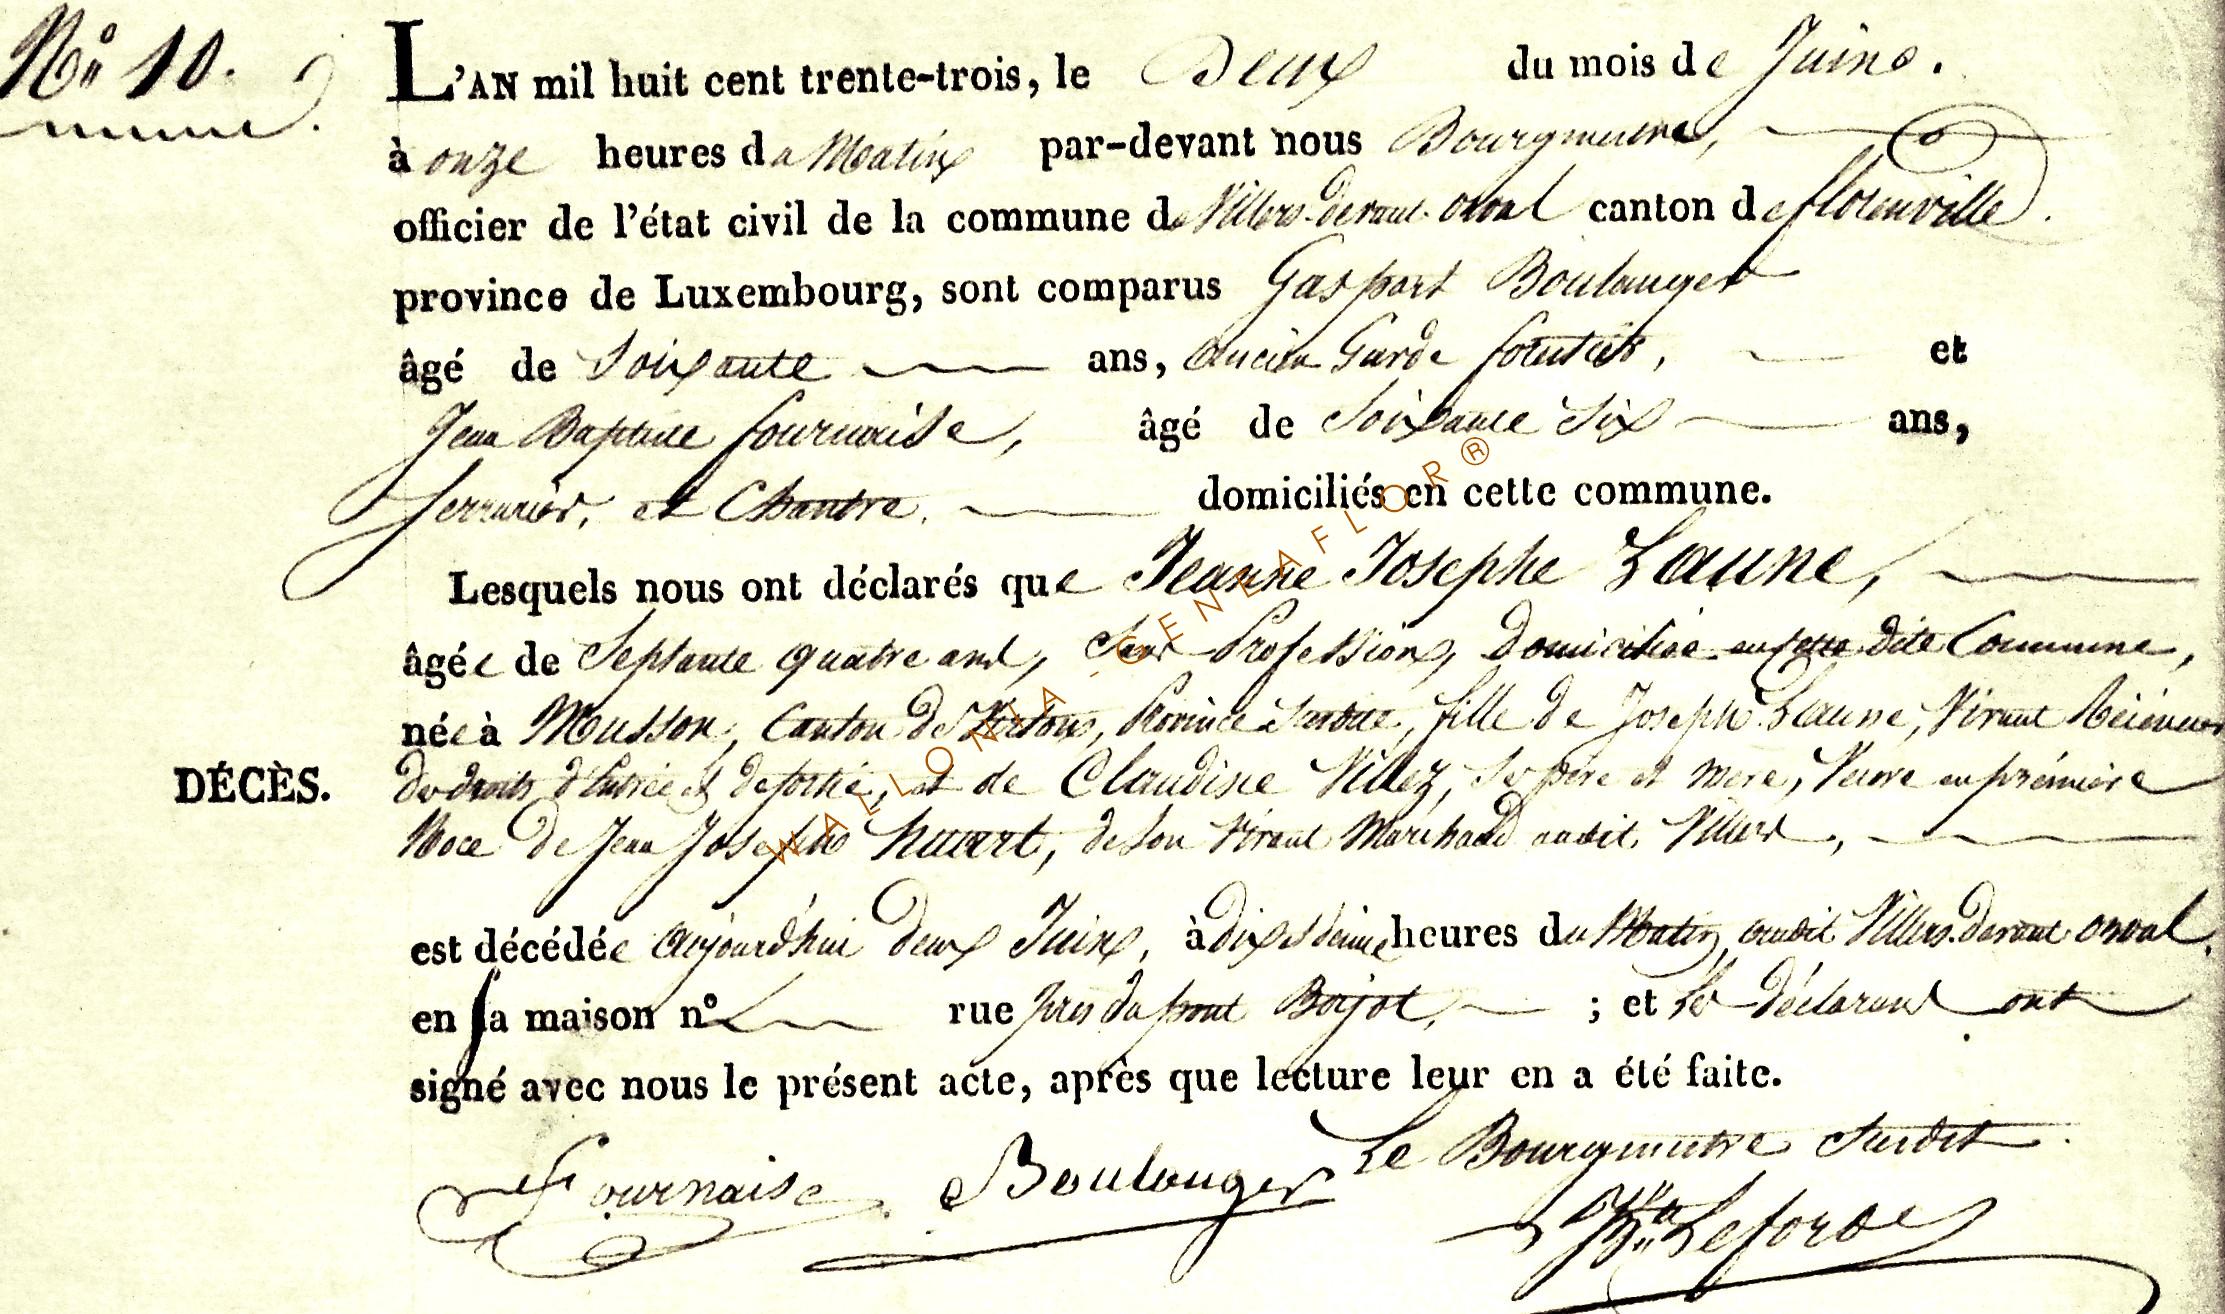 N° 10.
L'AN mil huit cent trente-trois, le Deux du mois de Juin.
à onze heures du Matin par-devant nous Bourgmestre,
officier de l'état civil de la commune de Villers-devant-orval canton de florenville.
province de Luxembourg, sont comparus Gaspart Boulanger
âgé de Soixante ans, ancien Garde forestier, et
Jean Baptiste fournaise, âgé de Soixante Six ans,
Serrurier, et Chantre. domiciliés en cette commune.
Lesquels nous ont déclarés que Jeanne Josephe Laune,
âgée de Septante quatre ans, Sans Profession, Domiciliée en cette dite Commune,
née à Musson, Canton de Virton, Province Susdite, fille de Joseph Laune, Vivant
DÉCÈS.
des droits d'Entrée et de sortie, et de Claudine Villez, Ses père et mere, Veuve en prémière
Noce de Jean Joseph huart, de Son Vivant Marchand audit Villers,
est décédée aujourd'hui deux Juin, à dix et demie heures du Matin, audit Villers-devant-orval.
en sa maison n° rue près du pont Bojot, ; et les déclarans ont
signé avec nous le présent acte, après que lecture leur en a été faite.
Le Bourgmestre Susdit
Fournaise Boulanger
Leforde
WALLONIA - GENEAFLOR®